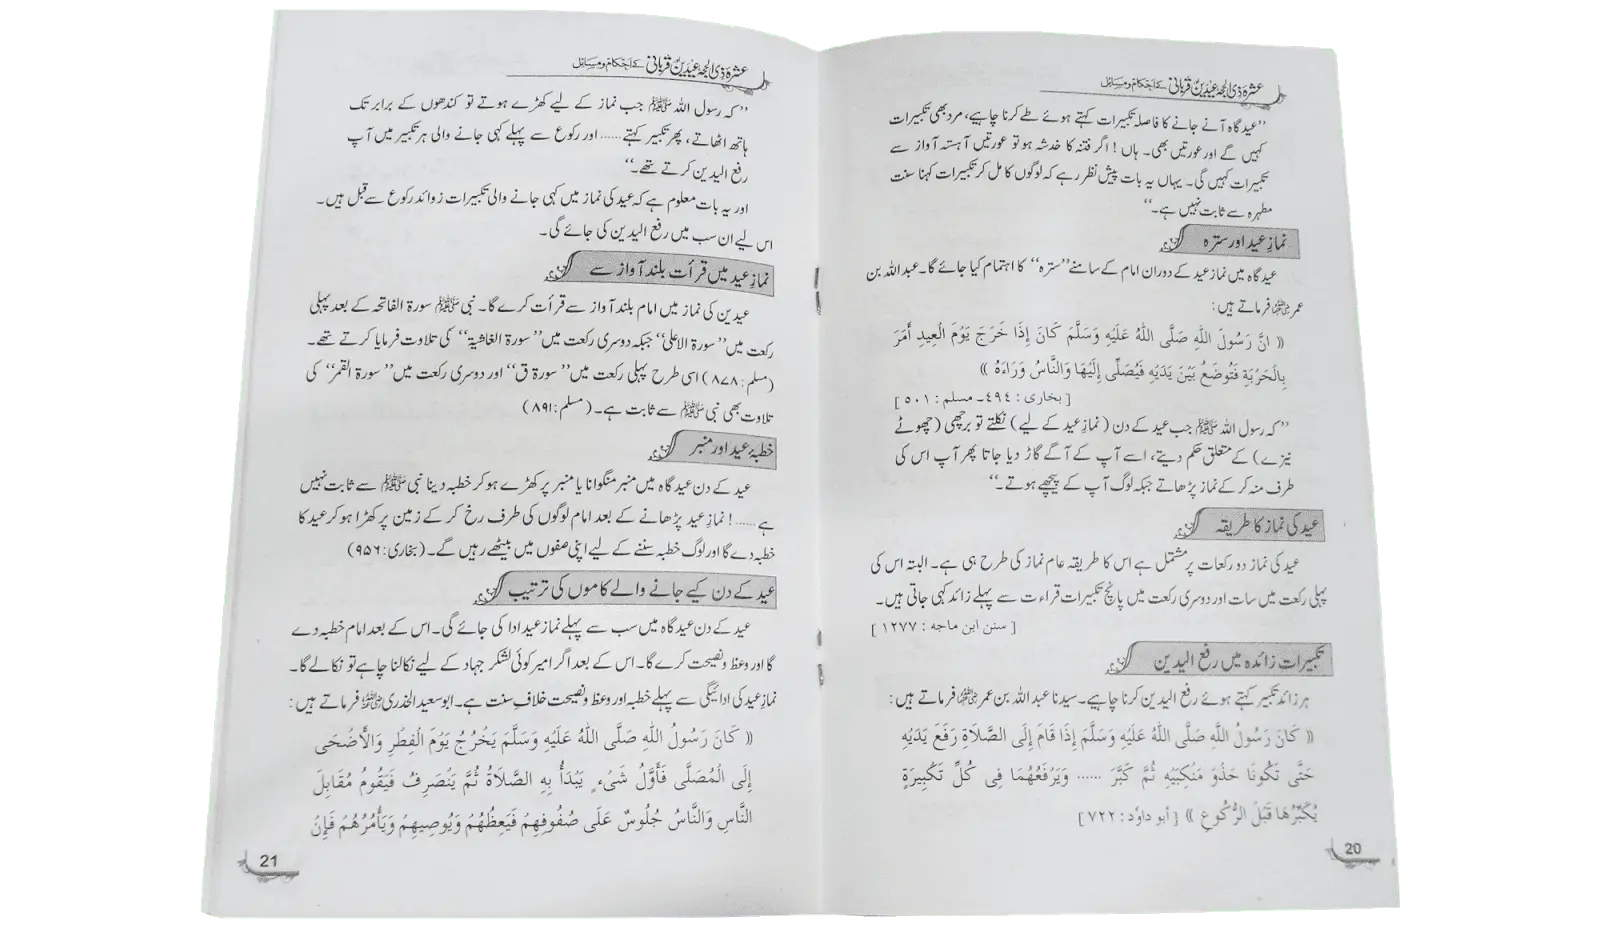 عشرہ ذی الحجہ عیدین قربانی کے احکام و مسائل
’’عید گاہ آنے جانے کا فاصلہ تکبیرات کہتے ہوئے طے کرنا چاہیے، مرد بھی تکبیرات
کہیں گے اور عورتیں بھی۔ ہاں! اگر فتنہ کا خدشہ ہو تو عورتیں آہستہ آواز سے
تکبیرات کہیں گی۔ یہاں یہ بات پیش نظر رہے کہ لوگوں کا مل کر تکبیرات کہنا سنت
مطہرہ سے ثابت نہیں ہے۔‘‘
نمازِ عید اور سترہ
عید گاہ میں نماز عید کے دوران امام کے سامنے ’’سترہ‘‘ کا اہتمام کیا جائے گا۔ عبداللہ بن
عمر ﷠ فرماتے ہیں:
(( انَّ رَسُولَ اللّٰهِ صَلَّى اللّٰهُ عَلَيْهِ وَسَلَّمَ كَانَ إِذَا خَرَجَ يَوْمَ الْعِيدِ أَمَرَ
بِالْحَرْبَةِ فَتُوضَعُ بَيْنَ يَدَيْهِ فَيُصَلِّى إِلَيْهَا وَالنَّاسُ وَرَاءَهُ ))
[ بخاری : ٤٩٤۔ مسلم : ٥٠١ ]
’’کہ رسول اللہ ﷺ جب عید کے دن (نمازِ عید کے لیے) نکلتے تو برچھی (چھوٹے
نیزے) کے متعلق حکم دیتے، اسے آپ کے آگے گاڑ دیا جاتا پھر آپ اس کی
طرف منہ کر کے نماز پڑھاتے جبکہ لوگ آپ کے پیچھے ہوتے۔‘‘
عید کی نماز کا طریقہ
عید کی نماز دو رکعات پر مشتمل ہے اس کا طریقہ عام نماز کی طرح ہی ہے۔ البتہ اس کی
پہلی رکعت میں سات اور دوسری رکعت میں پانچ تکبیرات قراءت سے پہلے زائد کہی جاتی ہیں۔
[ سنن ابن ماجه : ١٢٧٧ ]
تکبیراتِ زائدہ میں رفع الیدین
ہر زائد تکبیر کہتے ہوئے رفع الیدین کرنا چاہیے۔ سیدنا عبداللہ بن عمر ﷠ فرماتے ہیں:
(( كَانَ رَسُولُ اللَّهِ صَلَّى اللّٰهُ عَلَيْهِ وَسَلَّمَ إِذَا قَامَ إِلَى الصَّلَاةِ رَفَعَ يَدَيْهِ
حَتَّى تَكُونَا حَذْوَ مَنْكِبَيْهِ ثُمَّ كَبَّرَ ...... وَيَرْفَعُهُمَا فِى كُلِّ تَكْبِيرَةٍ
يُكَبِّرُهَا قَبْلَ الرُّكُوعِ )) [ أبو داوٗد : ٧٢٢ ]
20
عشرہ ذی الحجہ عیدین قربانی کے احکام و مسائل
’’کہ رسول اللہ ﷺ جب نماز کے لیے کھڑے ہوتے تو کندھوں کے برابر تک
ہاتھ اٹھاتے، پھر تکبیر کہتے...... اور رکوع سے پہلے کہی جانے والی ہر تکبیر میں آپ
رفع الیدین کرتے تھے۔‘‘
اور یہ بات معلوم ہے کہ عید کی نماز میں کہی جانے والی تکبیرات زوائد رکوع سے قبل ہیں۔
اس لیے ان سب میں رفع الیدین کی جائے گی۔
نمازِ عید میں قرأت بلند آواز سے
عیدین کی نماز میں امام بلند آواز سے قرأت کرے گا۔ نبی ﷺ سورۃ الفاتحہ کے بعد پہلی
رکعت میں ’’سورۃ الاعلیٰ‘‘ جبکہ دوسری رکعت میں ’’سورۃ الغاشیۃ‘‘ کی تلاوت فرمایا کرتے تھے۔
(مسلم: ۸۷۸) اسی طرح پہلی رکعت میں ’’سورۃ ق‘‘ اور دوسری رکعت میں ’’سورۃ القمر‘‘ کی
تلاوت بھی نبی ﷺ سے ثابت ہے۔ (مسلم: ۸۹۱)
خطبۂ عید اور منبر
عید کے دن عید گاہ میں منبر منگوانا یا منبر پر کھڑے ہو کر خطبہ دینا نبی ﷺ سے ثابت نہیں
ہے......! نمازِ عید پڑھانے کے بعد امام لوگوں کی طرف رخ کر کے زمین پر کھڑا ہو کر عید کا
خطبہ دے گا اور لوگ خطبہ سننے کے لیے اپنی صفوں میں بیٹھے رہیں گے۔ (بخاری: ۹۵۶)
عید کے دن کیے جانے والے کاموں کی ترتیب
عید کے دن عید گاہ میں سب سے پہلے نماز عید ادا کی جائے گی۔ اس کے بعد امام خطبہ دے
گا اور وعظ و نصیحت کرے گا۔ اس کے بعد اگر امیر کوئی لشکر جہاد کے لیے نکالنا چاہے تو نکالے گا۔
نماز عید کی ادائیگی سے پہلے خطبہ اور وعظ و نصیحت خلافِ سنت ہے۔ ابو سعید الخدری ﷜ فرماتے ہیں:
(( كَانَ رَسُولُ اللّٰهِ صَلَّى اللّٰهُ عَلَيْهِ وَسَلَّمَ يَخْرُجُ يَوْمَ الْفِطْرِ وَالْأَضْحَى
إِلَى الْمُصَلَّى فَأَوَّلُ شَىْءٍ يَبْدَأُ بِهِ الصَّلَاةُ ثُمَّ يَنْصَرِفُ فَيَقُومُ مُقَابِلَ
النَّاسِ وَالنَّاسُ جُلُوسٌ عَلَى صُفُوفِهِمْ فَيَعِظُهُمْ وَيُوصِيهِمْ وَيَأْمُرُهُمْ فَإِنْ
21